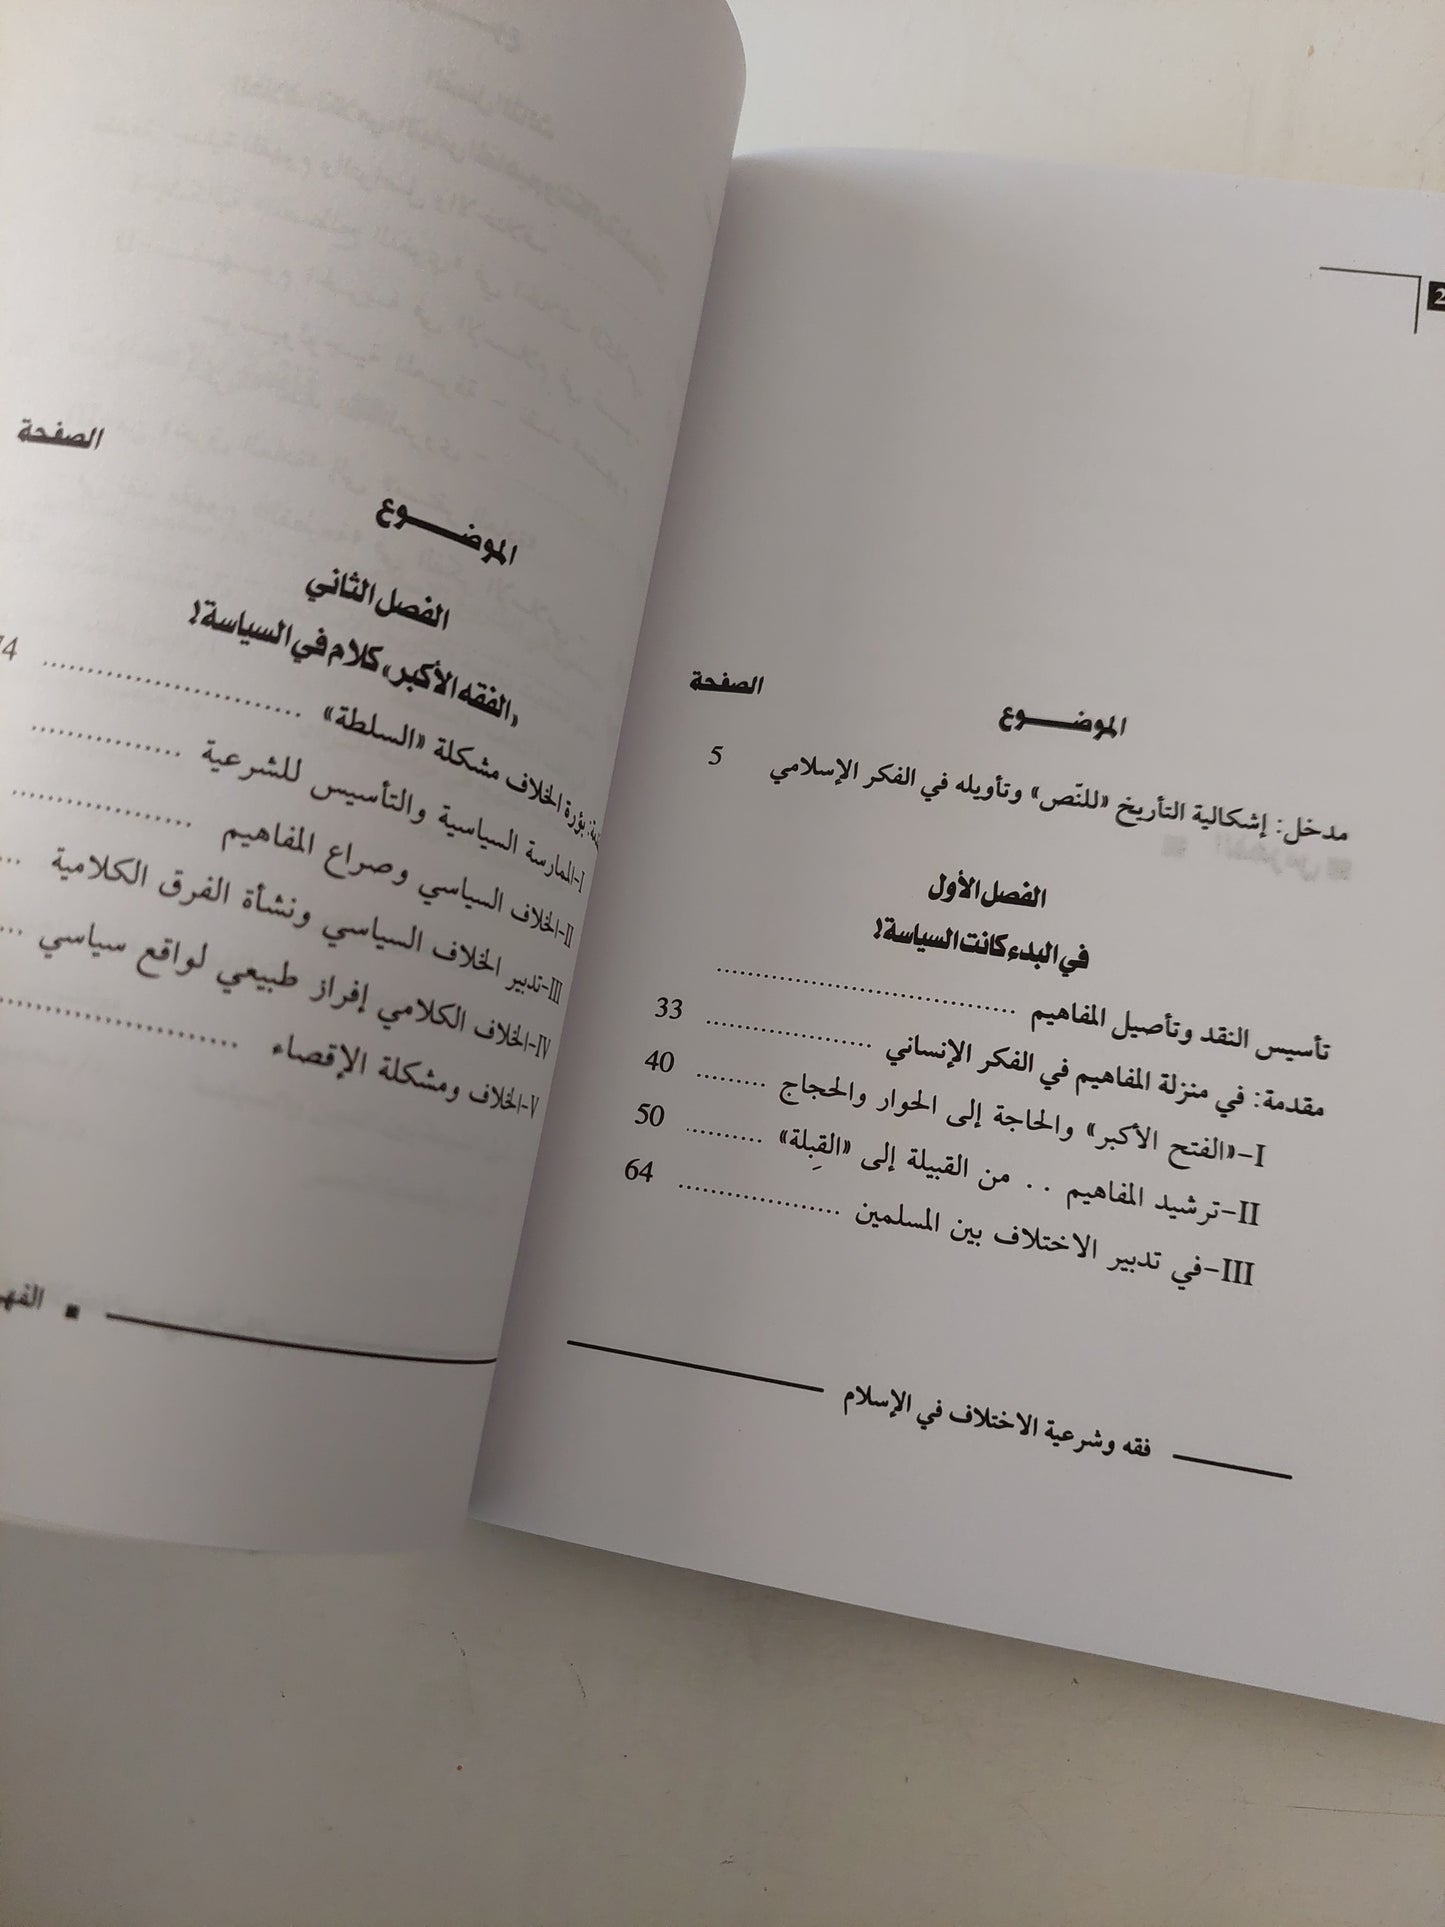 2
الموضـــــوع
الصفحة
مدخل: إشكالية التأريخ «للنّص» وتأويله في الفكر الإسلامي 5
الفصل الأول
في البدء كانت السياسة!
تأسيس النقد وتأصيل المفاهيم ....................................
مقدمة: في منزلة المفاهيم في الفكر الإنساني .................... 33
I-«الفتح الأكبر» والحاجة إلى الحوار والحجاج ......... 40
II-ترشيد المفاهيم . . من القبيلة إلى «القِبلة» .......... 50
III-في تدبير الاختلاف بين المسلمين ................... 64
فقه وشرعية الاختلاف في الإسلام
الموضـــــوع
الصفحة
الفصل الثاني
«الفقه الأكبر» كلام في السياسة!
بؤرة الخلاف مشكلة «السلطة» .............................. 4
I-الممارسة السياسية والتأسيس للشرعية ................
II-الخلاف السياسي وصراع المفاهيم .....................
III-تدبير الخلاف السياسي ونشأة الفرق الكلامية ...
IV-الخلاف الكلامي إفراز طبيعي لواقع سياسي ...
V-الخلاف ومشكلة الإقصاء ............................